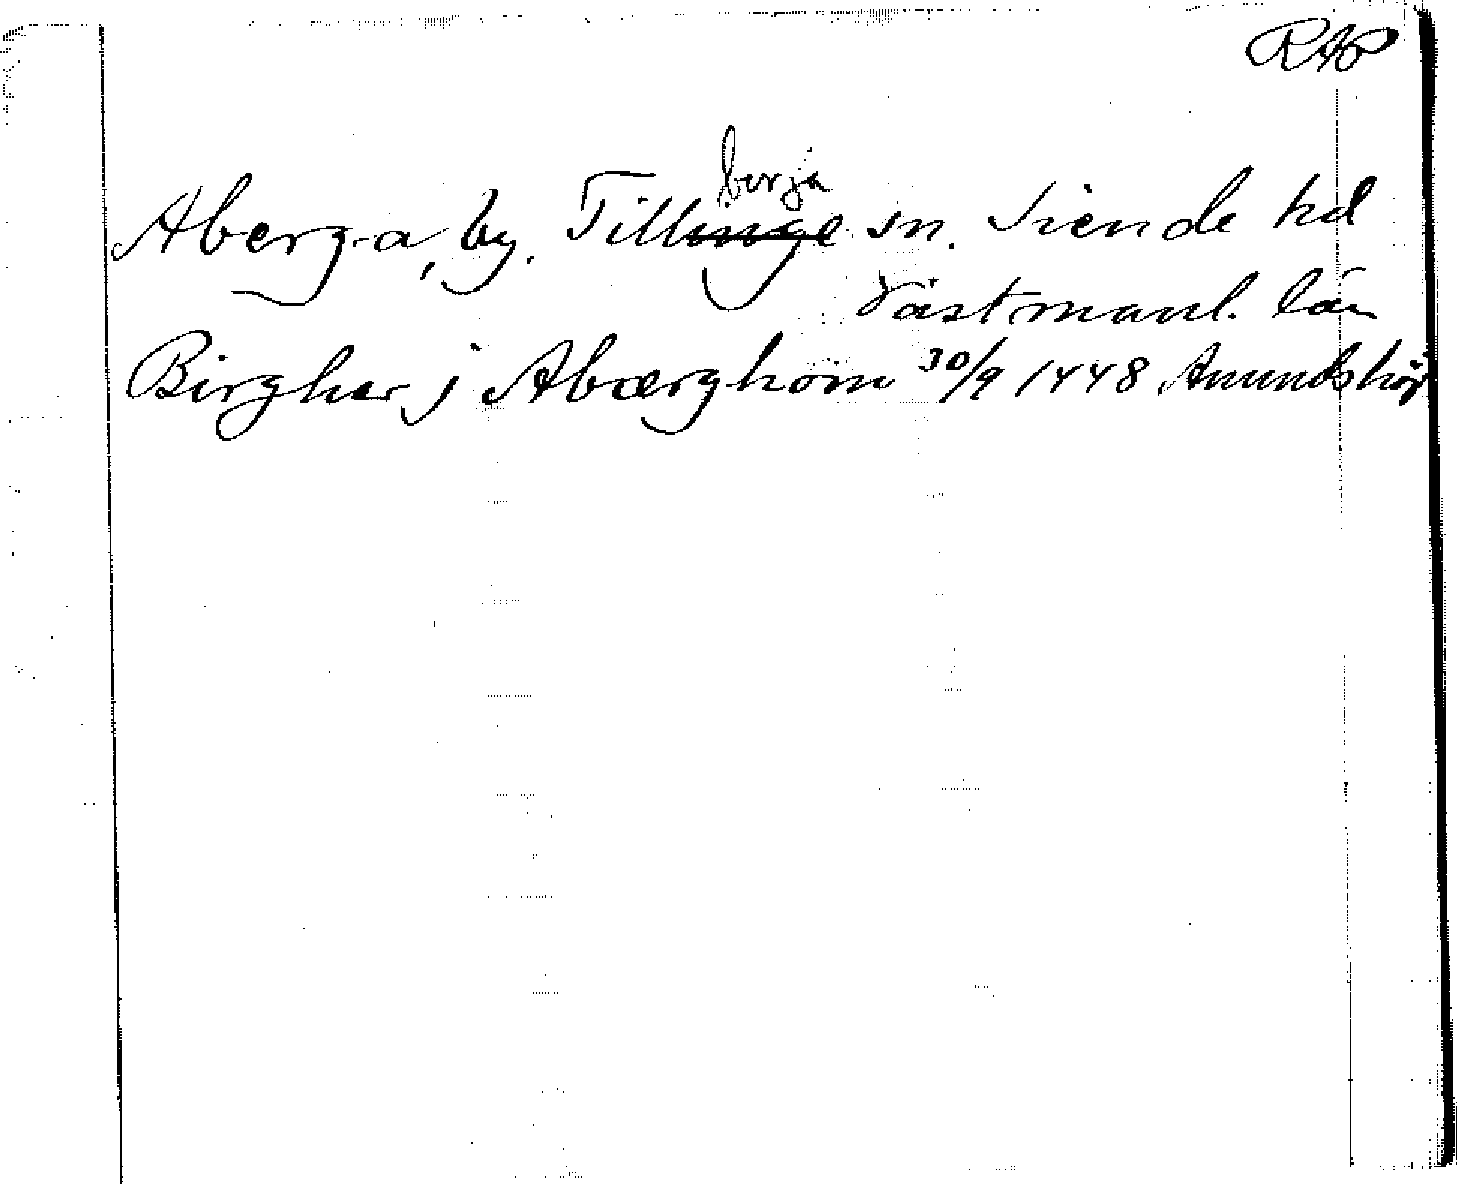 RAP
Aberga, by. Tillinge berga sn. Siende hd
Västmanl. län
Birgher j Abærghom 30/9 1448 Amundshög